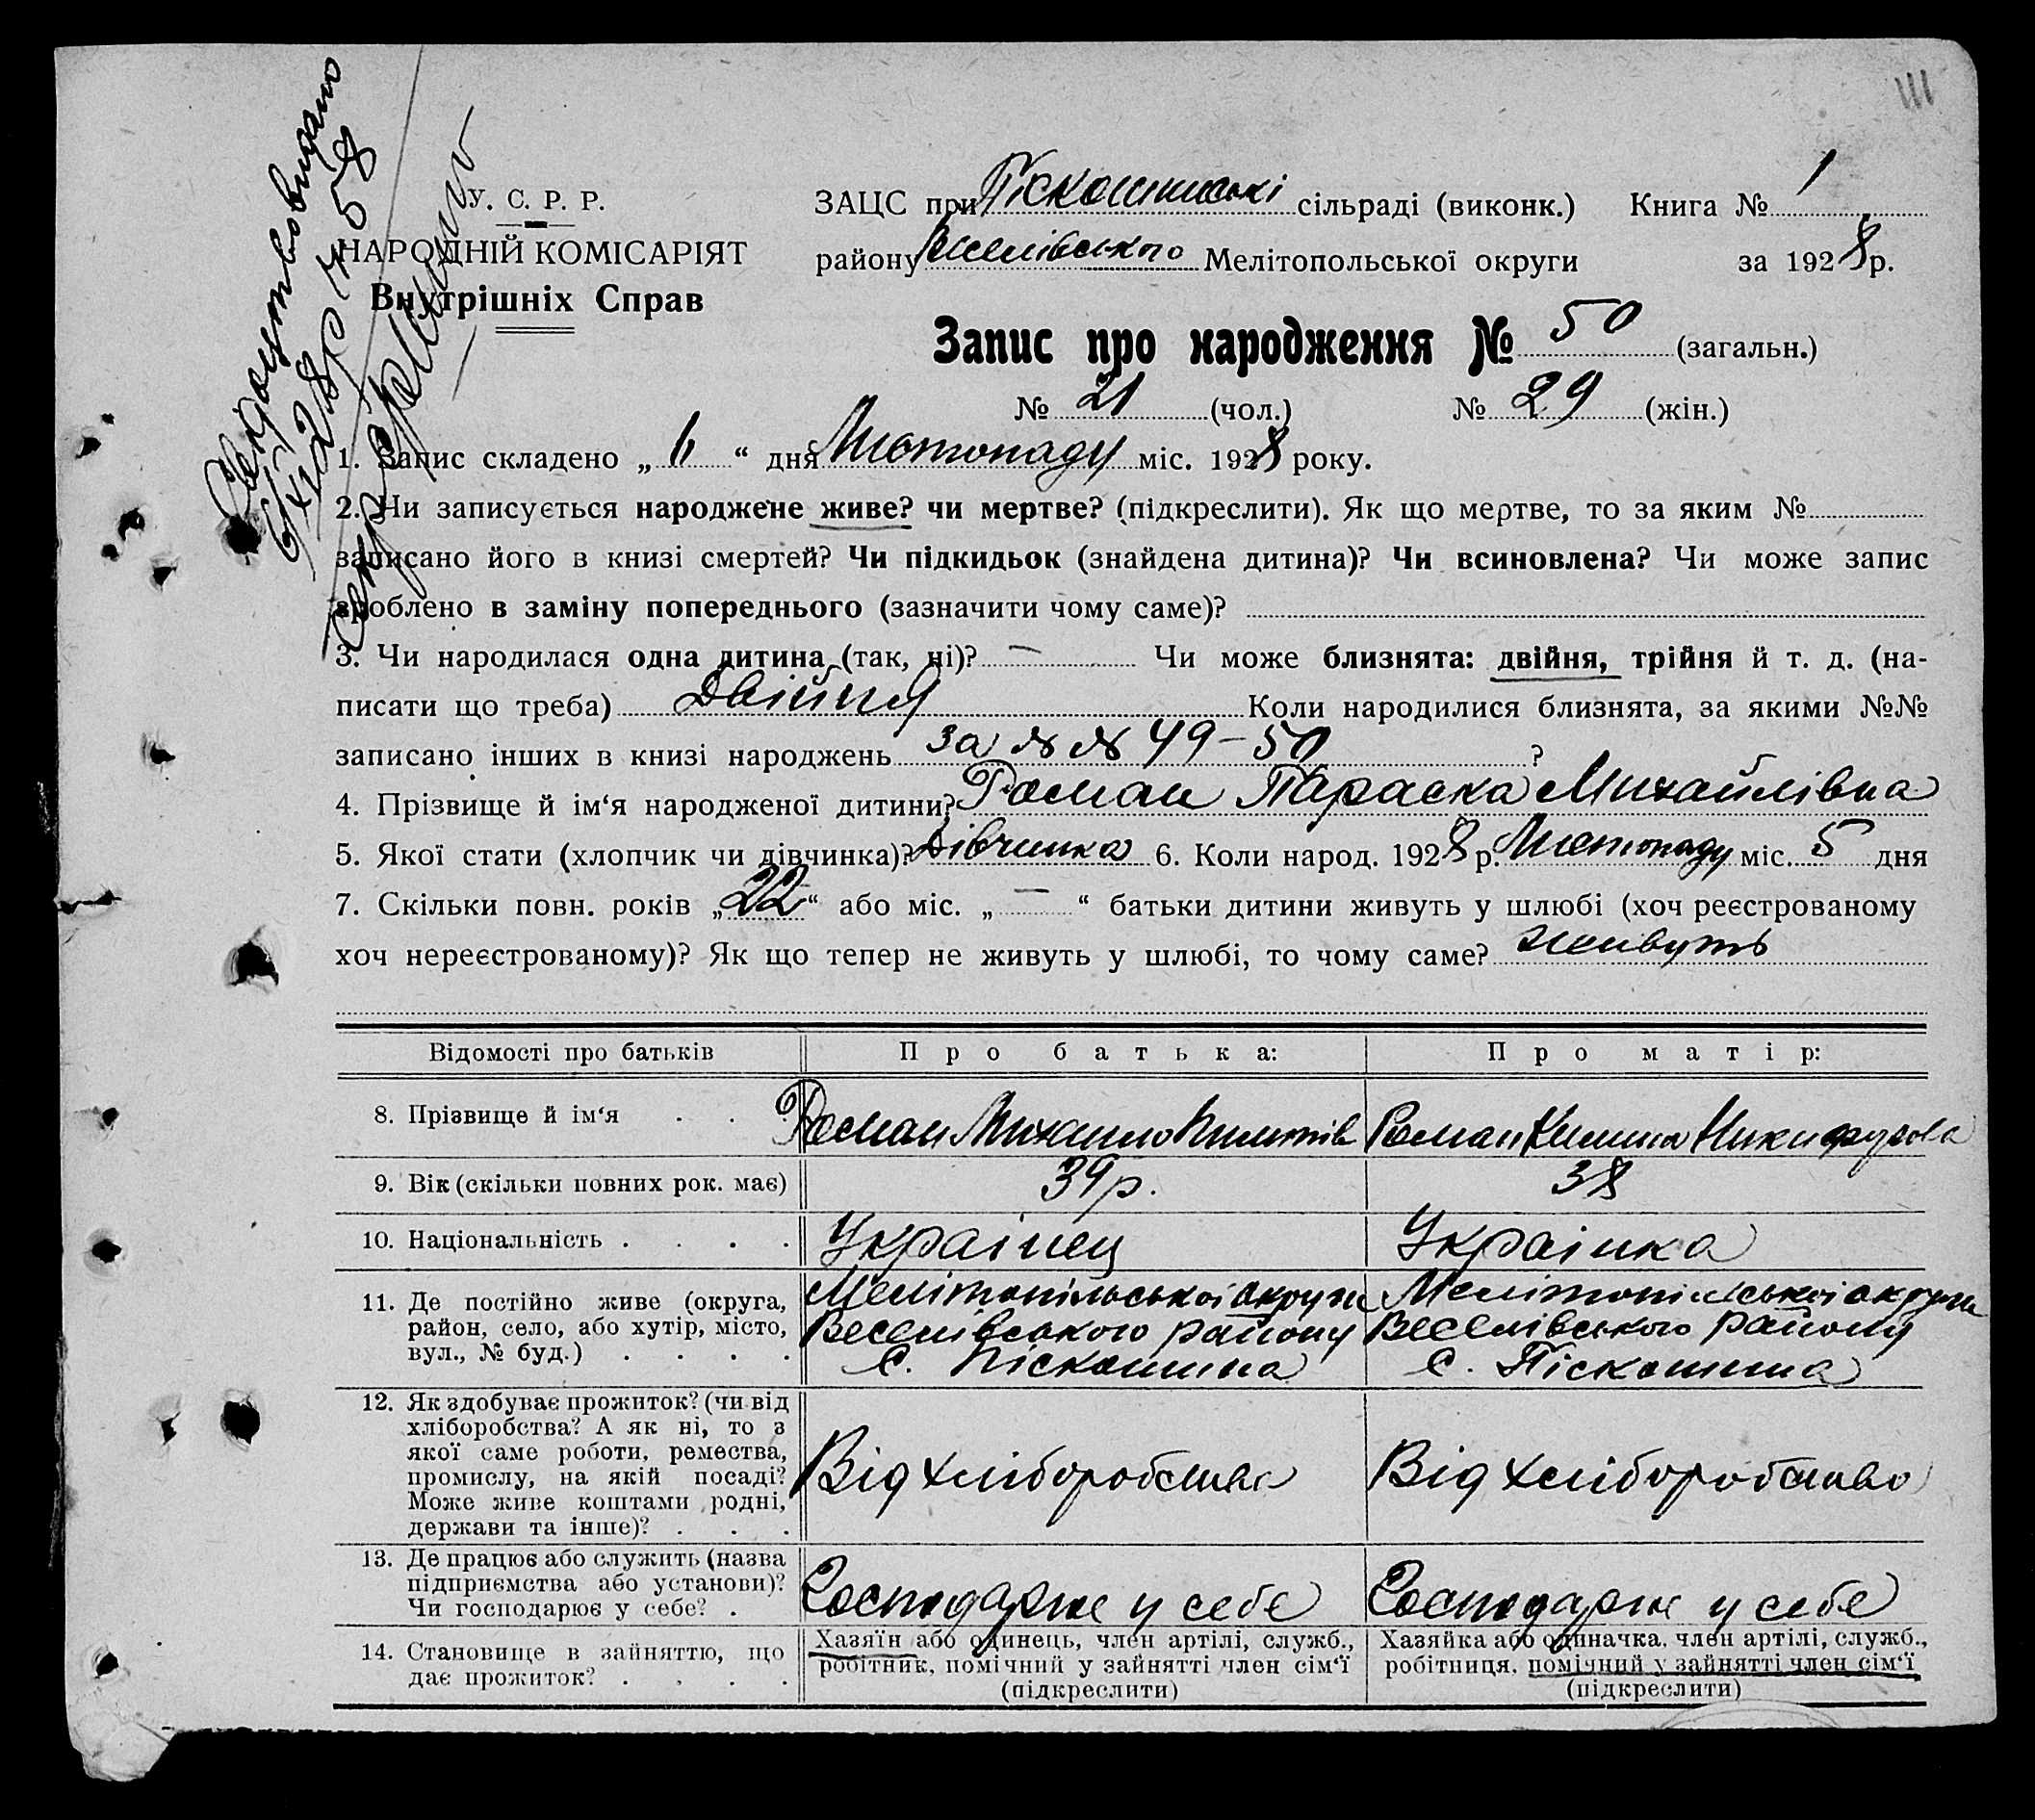 111
Свідоцтво видано
6/XI 28 р № 58
Секр
У. С. Р. Р.
НАРОДНІЙ КОМІСАРІЯТ
Внутрішніх Справ
ЗАЦС при Піскошинські сільраді (виконк.) Книга № 1
району Веселівського Мелітопольської округи за 1928 р.
Запис про народження № 50 (загальн.)
№ 21 (чол.) № 29 (жін.)
1. Запис складено „ 6 “ дня Листопаду міс. 1928 року.
2. Чи записується народжене живе? чи мертве? (підкреслити). Як що мертве, то за яким №
записано його в книзі смертей? Чи підкидьок (знайдена дитина)? Чи всиновлена? Чи може запис
зроблено в заміну попереднього (зазначити чому саме)?
3. Чи народилася одна дитина (так, ні)? — Чи може близнята: двійня, трійня й т. д. (на-
писати що треба) Двійня Коли народилися близнята, за якими №№
записано інших в книзі народжень за № № 49-50 ?
4. Прізвище й ім‘я народженої дитини? Роман Параска Михайлівна
5. Якої стати (хлопчик чи дівчинка)? Дівчинка 6. Коли народ. 1928 р. Листопаду міс. 5 дня
7. Скільки повн. років „ 22 “ або міс. „ — “ батьки дитини живуть у шлюбі (хоч реєстрованому
хоч нереєстрованому)? Як що тепер не живуть у шлюбі, то чому саме? живуть
Відомості про батьків Про батька: Про матір:
8. Прізвище й ім‘я . . . Роман Михайло Роман Килина Никифорова
9. Вік (скільки повних рок. має) 39 р. 38
10. Національність . . . . Українец Українка
11. Де постійно живе (округа, район, село, або хутір, місто, вул., № буд.) . . . .
Мелітопільської округи Мелітопільської округи
Веселівського району Веселівського району
с. Піскошина с. Піскошина
12. Як здобуває прожиток? (чи від
хліборобства? А як ні, то з
якої саме роботи, ремества,
промислу, на якій посаді?
Може живе коштами родні,
держави та інше)? . . .
Від хліборобства Від хліборобства
13. Де працює або служить (назва
підприємства або установи)?
Чи господарює у себе? .
Господарює у себе Господарює у себе
14. Становище в зайняттю, що
дає прожиток? . . . .
Хазяїн або одинець, член артілі, служб.,
робітник, помічний у зайнятті член сім‘ї
(підкреслити)
Хазяйка або одиначка, член артілі, служб.,
робітниця, помічний у зайнятті член сім‘ї
(підкреслити)